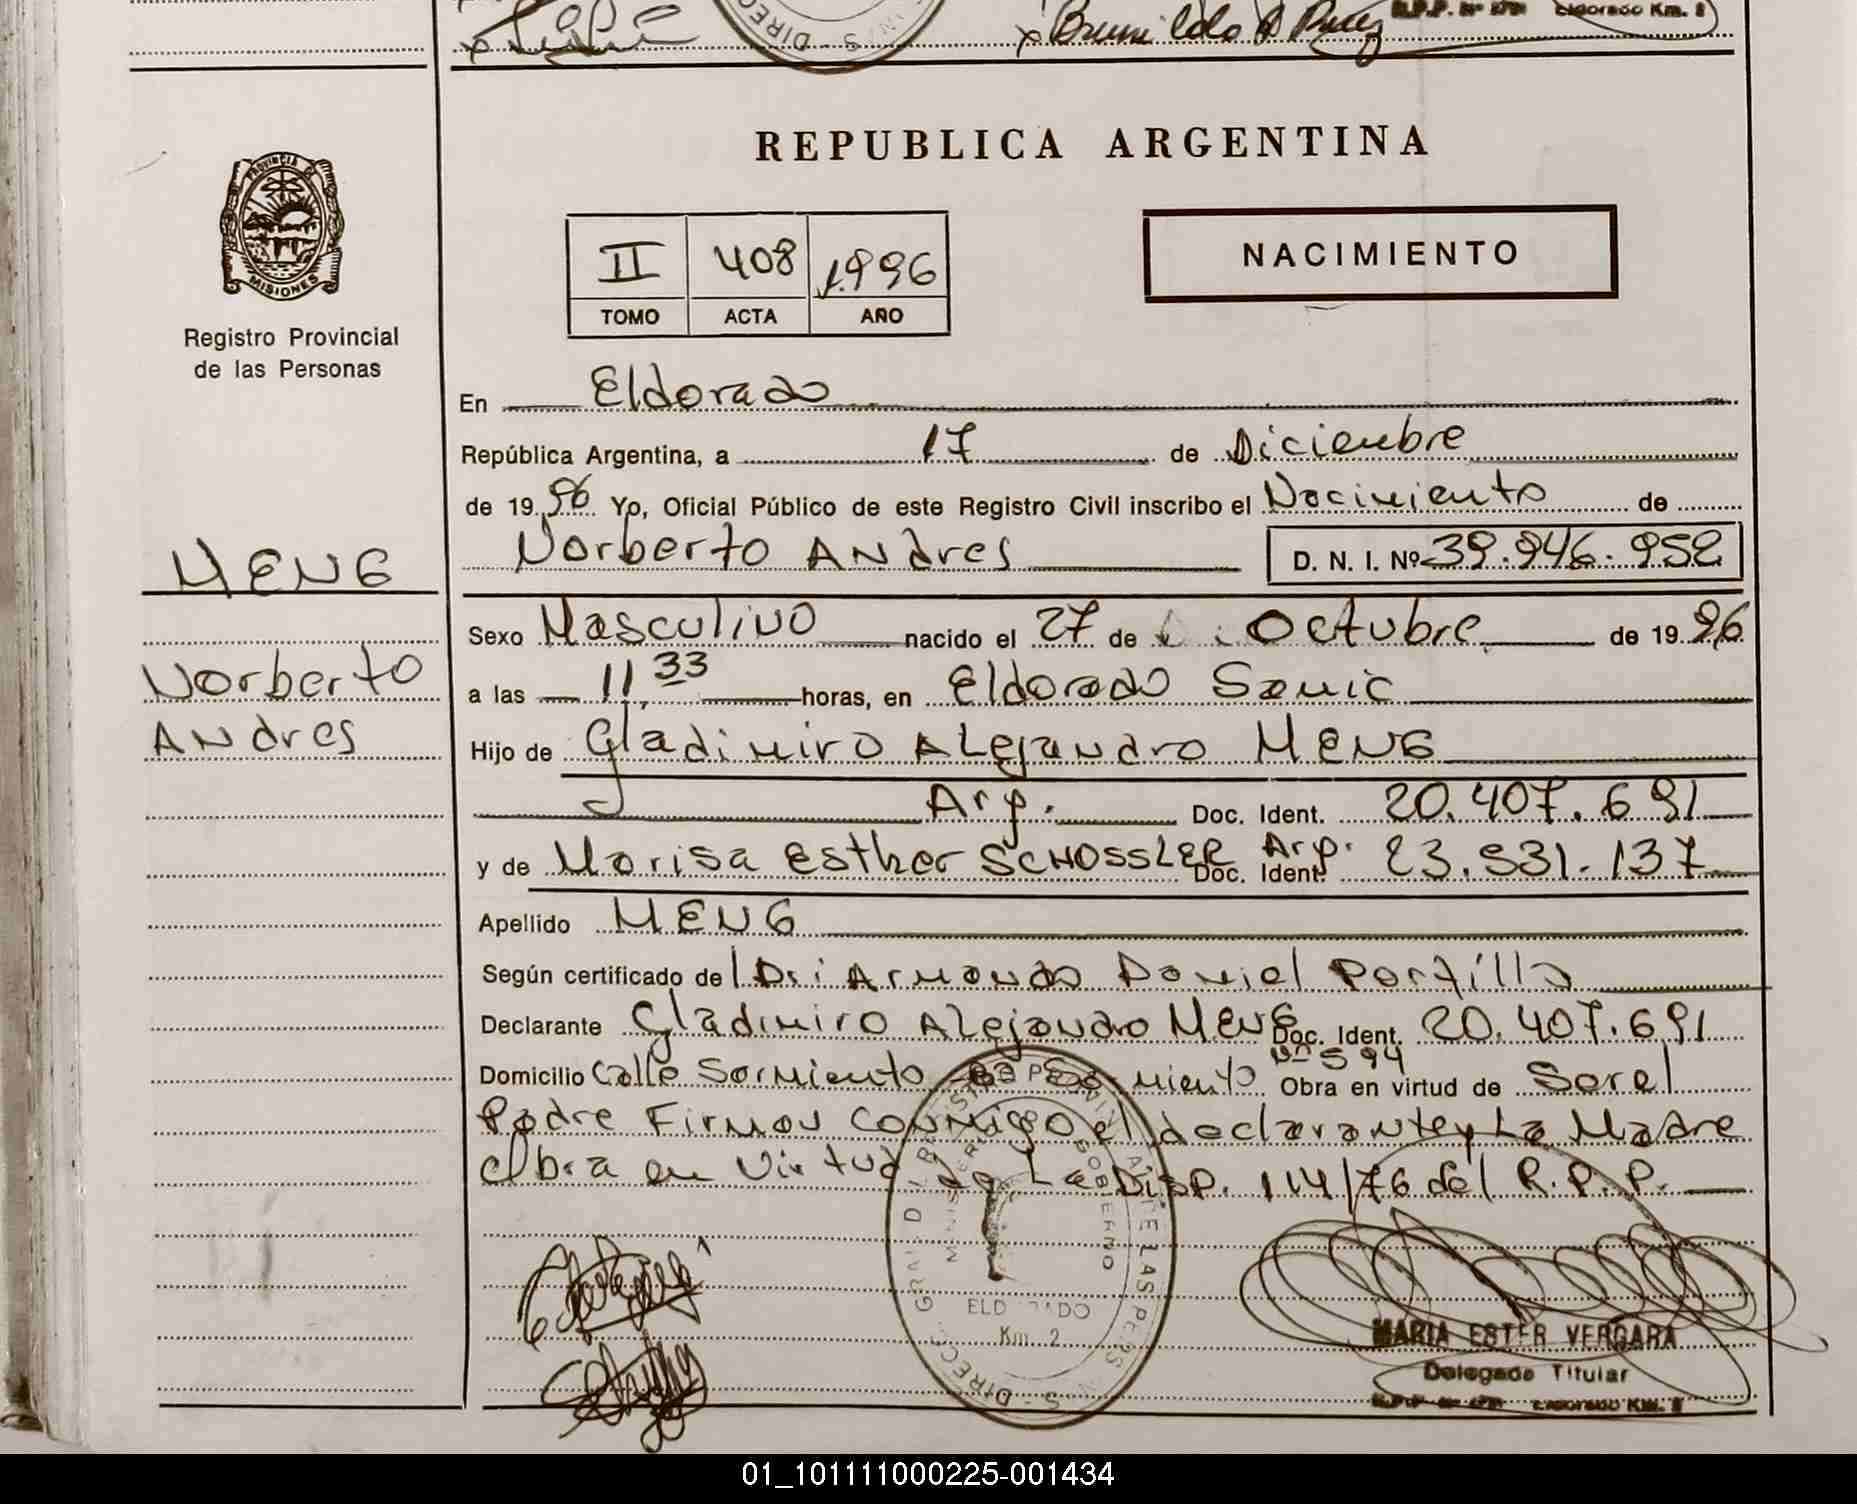 Brunilda
R.P.P. Nº Eldorado Km. 2
REPUBLICA ARGENTINA
PROVINCIA DE MISIONES
Registro Provincial
de las Personas
II 408 1.996
TOMO ACTA AÑO
NACIMIENTO
En Eldorado
República Argentina, a 17 de Diciembre
de 19 96 Yo, Oficial Público de este Registro Civil inscribo el Nacimiento de
Norberto Andres D. N. I. Nº 39.946.952
MENG
Norberto
Andres
Sexo Masculino nacido el 27 de Octubre de 19 96
a las 11,33 horas, en Eldorado Samic
Hijo de Gladimiro Alejandro MENG
Arg. Doc. Ident. 20.407.691
y de Marisa Esther SCHOSSLER Arg. Doc. Ident. 23.931.137
Apellido MENG
Según certificado del Dr. Armando Daniel Portillo
Declarante Gladimiro Alejandro MENG Doc. Ident. 20.407.691
Domicilio Calle Sarmiento Nº 594 Obra en virtud de Ser el
Padre Firman conmigo el declarante y La Madre
Obra en Virtud de La Disp. 114/76 del R.P.P.
ELDORADO
Km. 2
MARIA ESTER VERGARA
Delegada Titular
R.P.P. Nº Eldorado Km. 2
01_101111000225-001434